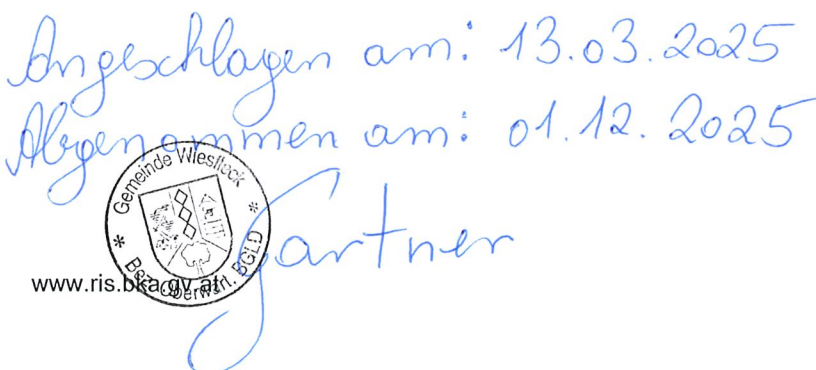 Angeschlagen am: 13.03.2025
Abgenommen am: 01.12.2025
Gemeinde Wiesfleck
* Bez. Oberwart, BGLD *
Gartner
www.ris.bka.gv.at